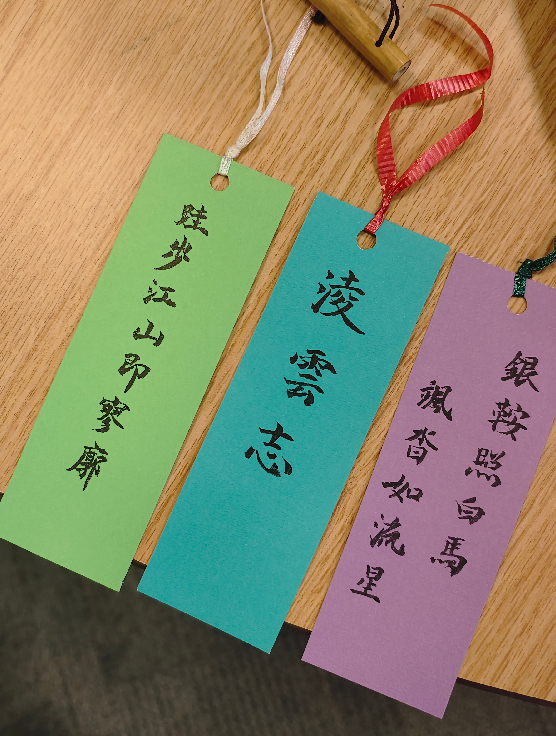 跬步江山即寥廓
淩雲志
銀鞍照白馬
颯沓如流星